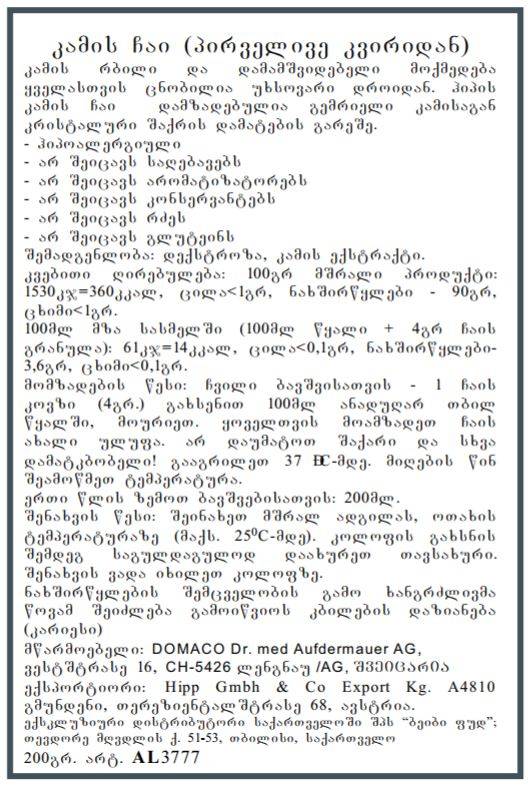 კამის ჩაი (პირველივე კვირიდან)
კამის რბილი და დამამშვიდებელი მოქმედება
ყველასთვის ცნობილია უხსოვარი დროიდან. ჰიპის
კამის ჩაი დამზადებულია გემრიელი კამისაგან
კრისტალური შაქრის დამატების გარეშე.
- ჰიპოალერგიული
- არ შეიცავს საღებავებს
- არ შეიცავს არომატიზატორებს
- არ შეიცავს კონსერვანტებს
- არ შეიცავს რძეს
- არ შეიცავს გლუტეინს
შემადგენლობა: დექსტროზა, კამის ექსტრაქტი.
კვებითი ღირებულება: 100გრ მშრალი პროდუქტი:
1530კჯ=360კკალ, ცილა<1გრ, ნახშირწყლები - 90გრ,
ცხიმი<1გრ.
100მლ მზა სასმელში (100მლ წყალი + 4გრ ჩაის
გრანულა): 61კჯ=14კკალ, ცილა<0,1გრ, ნახშირწყლები-
3,6გრ, ცხიმი<0,1გრ.
მომზადების წესი: ჩვილი ბავშვისათვის - 1 ჩაის
კოვზი (4გრ.) გახსენით 100მლ ანადუღარ თბილ
წყალში, მოურიეთ. ყოველთვის მოამზადეთ ჩაის
ახალი ულუფა. არ დაუმატოთ შაქარი და სხვა
დამატკბობელი! გააგრილეთ 37 C-მდე. მიღების წინ
შეამოწმეთ ტემპერატურა.
ერთი წლის ზემოთ ბავშვებისათვის: 200მლ.
შენახვის წესი: შეინახეთ მშრალ ადგილას, ოთახის
ტემპერატურაზე (მაქს. 25⁰C-მდე). კოლოფის გახსნის
შემდეგ საგულდაგულოდ დაახურეთ თავსახური.
შენახვის ვადა იხილეთ კოლოფზე.
ნახშირწყლების შემცველობის გამო ხანგრძლივმა
წოვამ შეიძლება გამოიწვიოს კბილების დაზიანება
(კარიესი)
მწარმოებელი: DOMACO Dr. med Aufdermauer AG,
ვესტშტრასე 16, CH-5426 ლენგნაუ /AG, შვეიცარია
ექსპორტიორი: Hipp Gmbh & Co Export Kg. A4810
გმუნდენი, თერეზიენტალშტრასე 68, ავსტრია.
ექსკლუზიური დისტრიბუტორი საქართველოში შპს “ბეიბი ფუდ”;
თევდორე მღვდლის ქ. 51-53, თბილისი, საქართველო
200გრ. არტ. AL3777